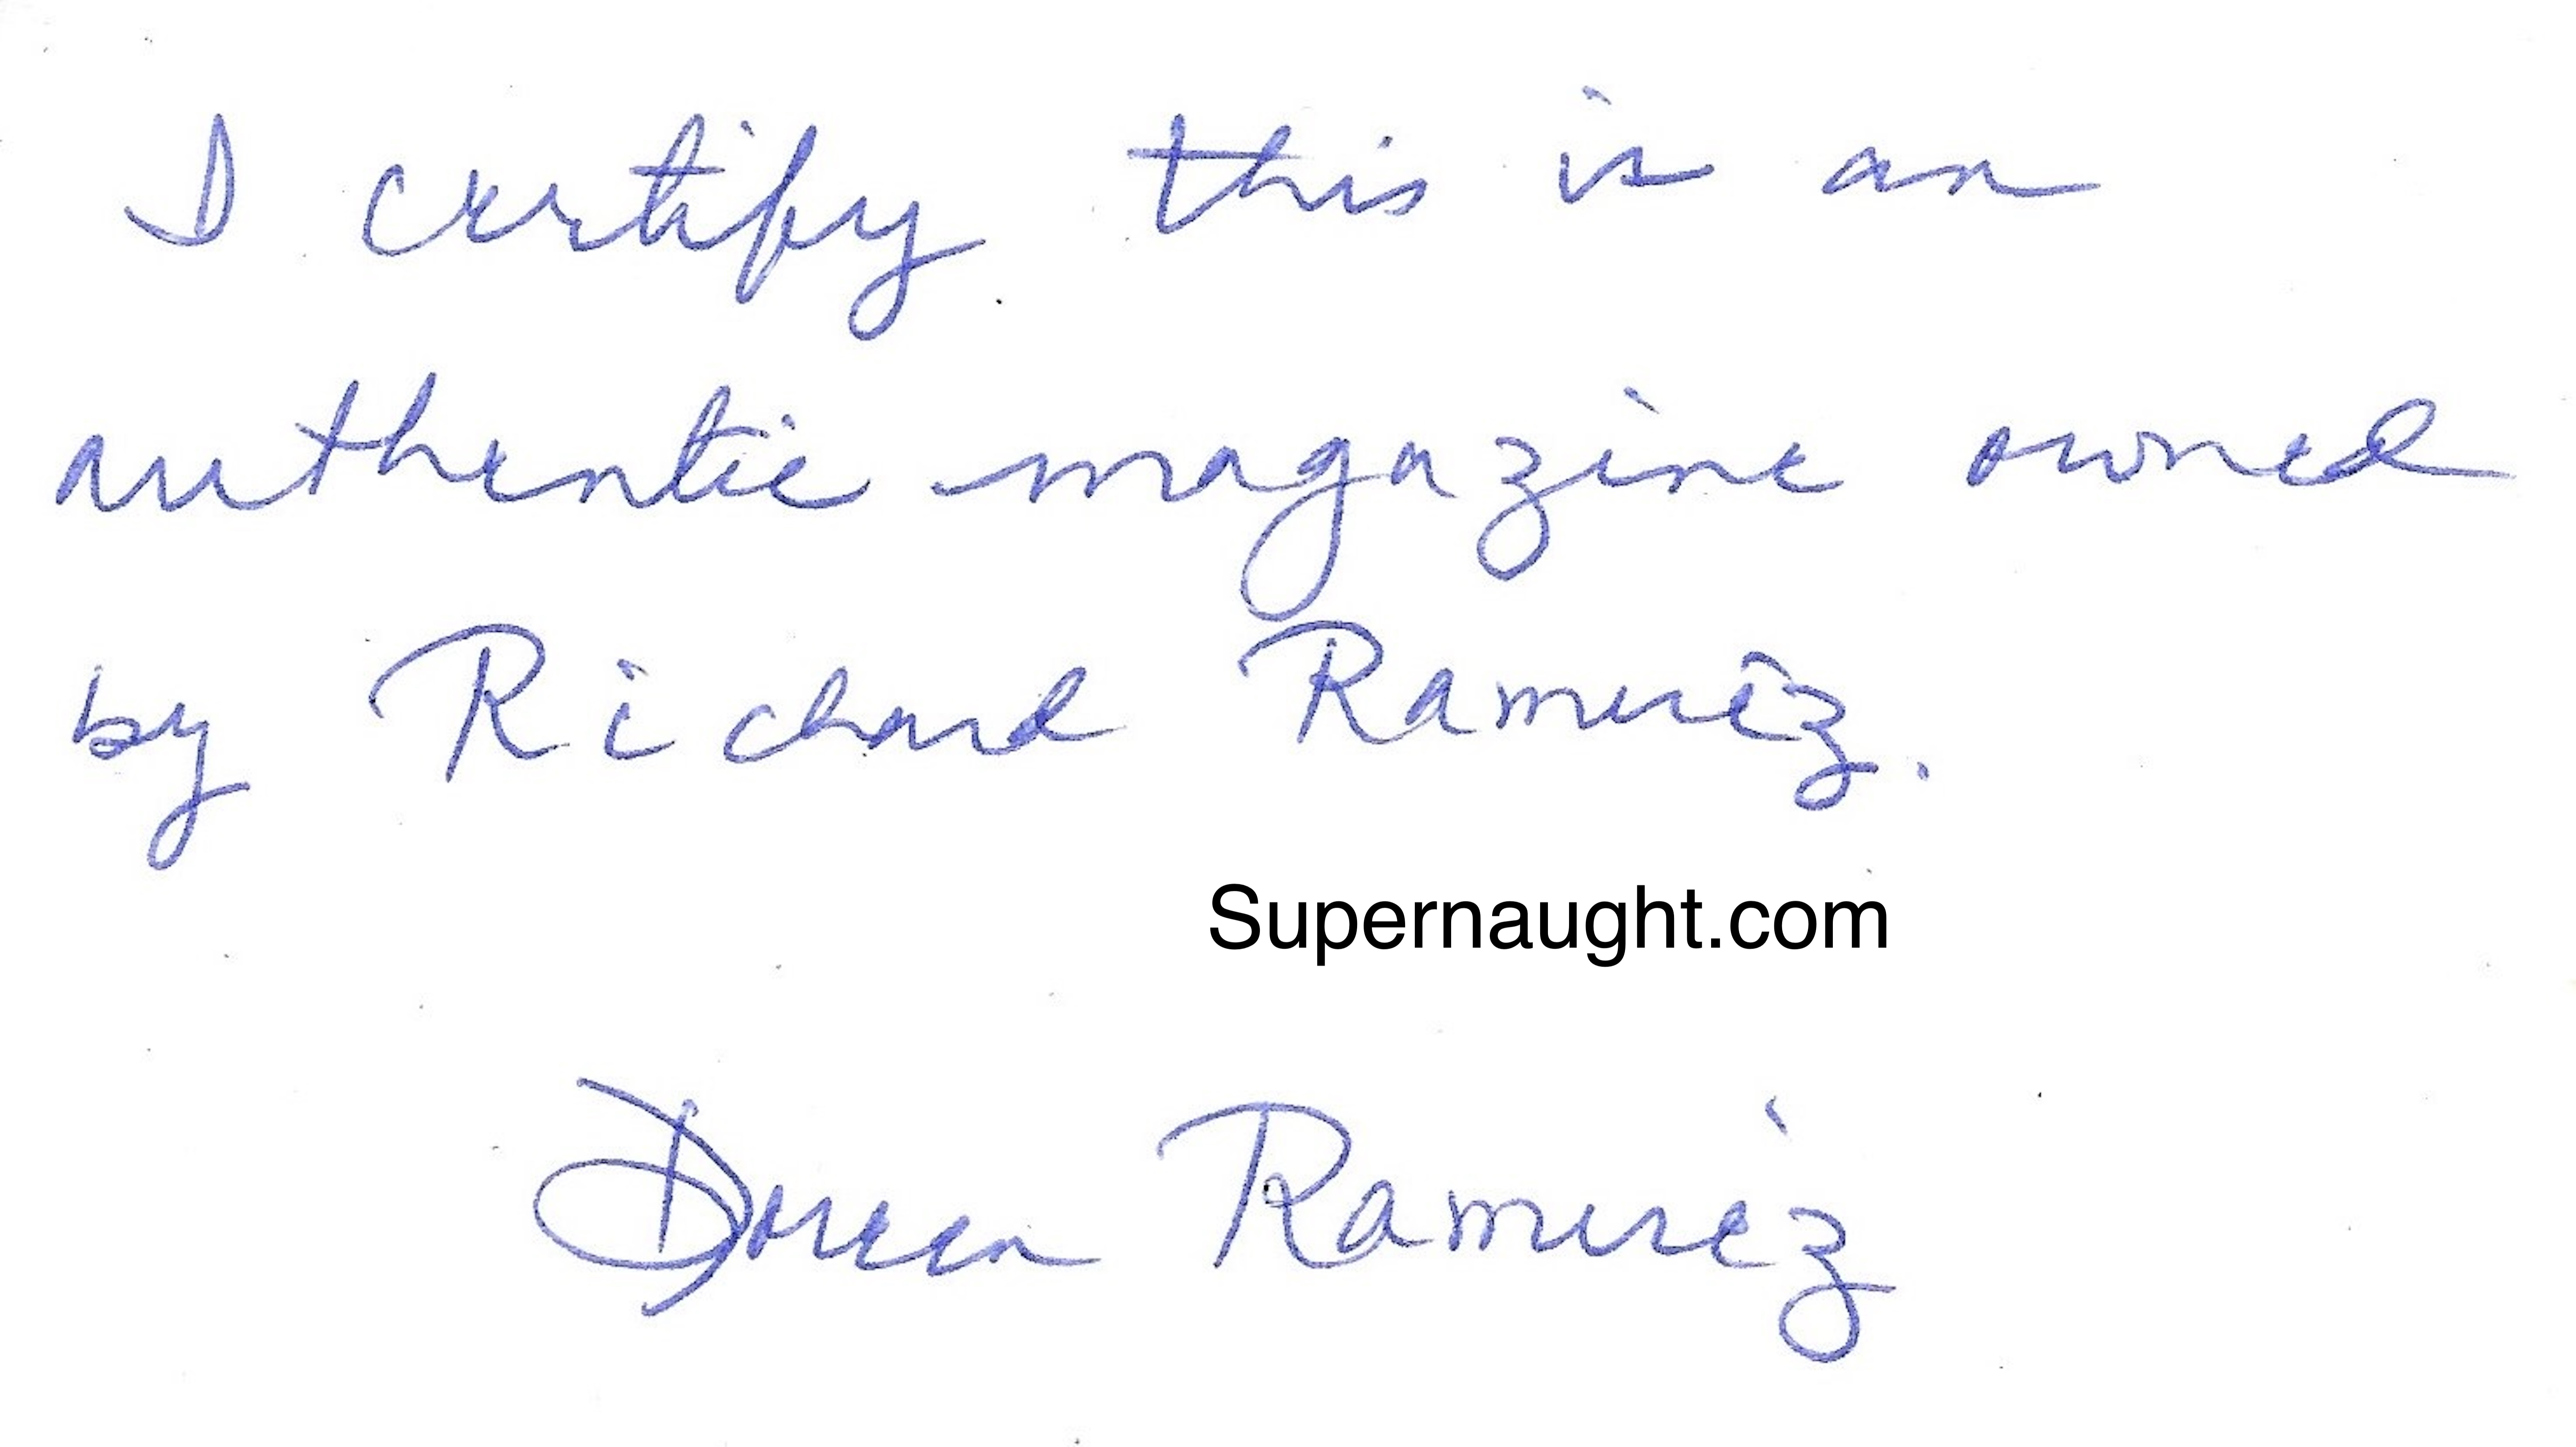 I certify this is an
authentic magazine owned
by Richard Ramirez.
Supernaught.com
Doreen Ramirez